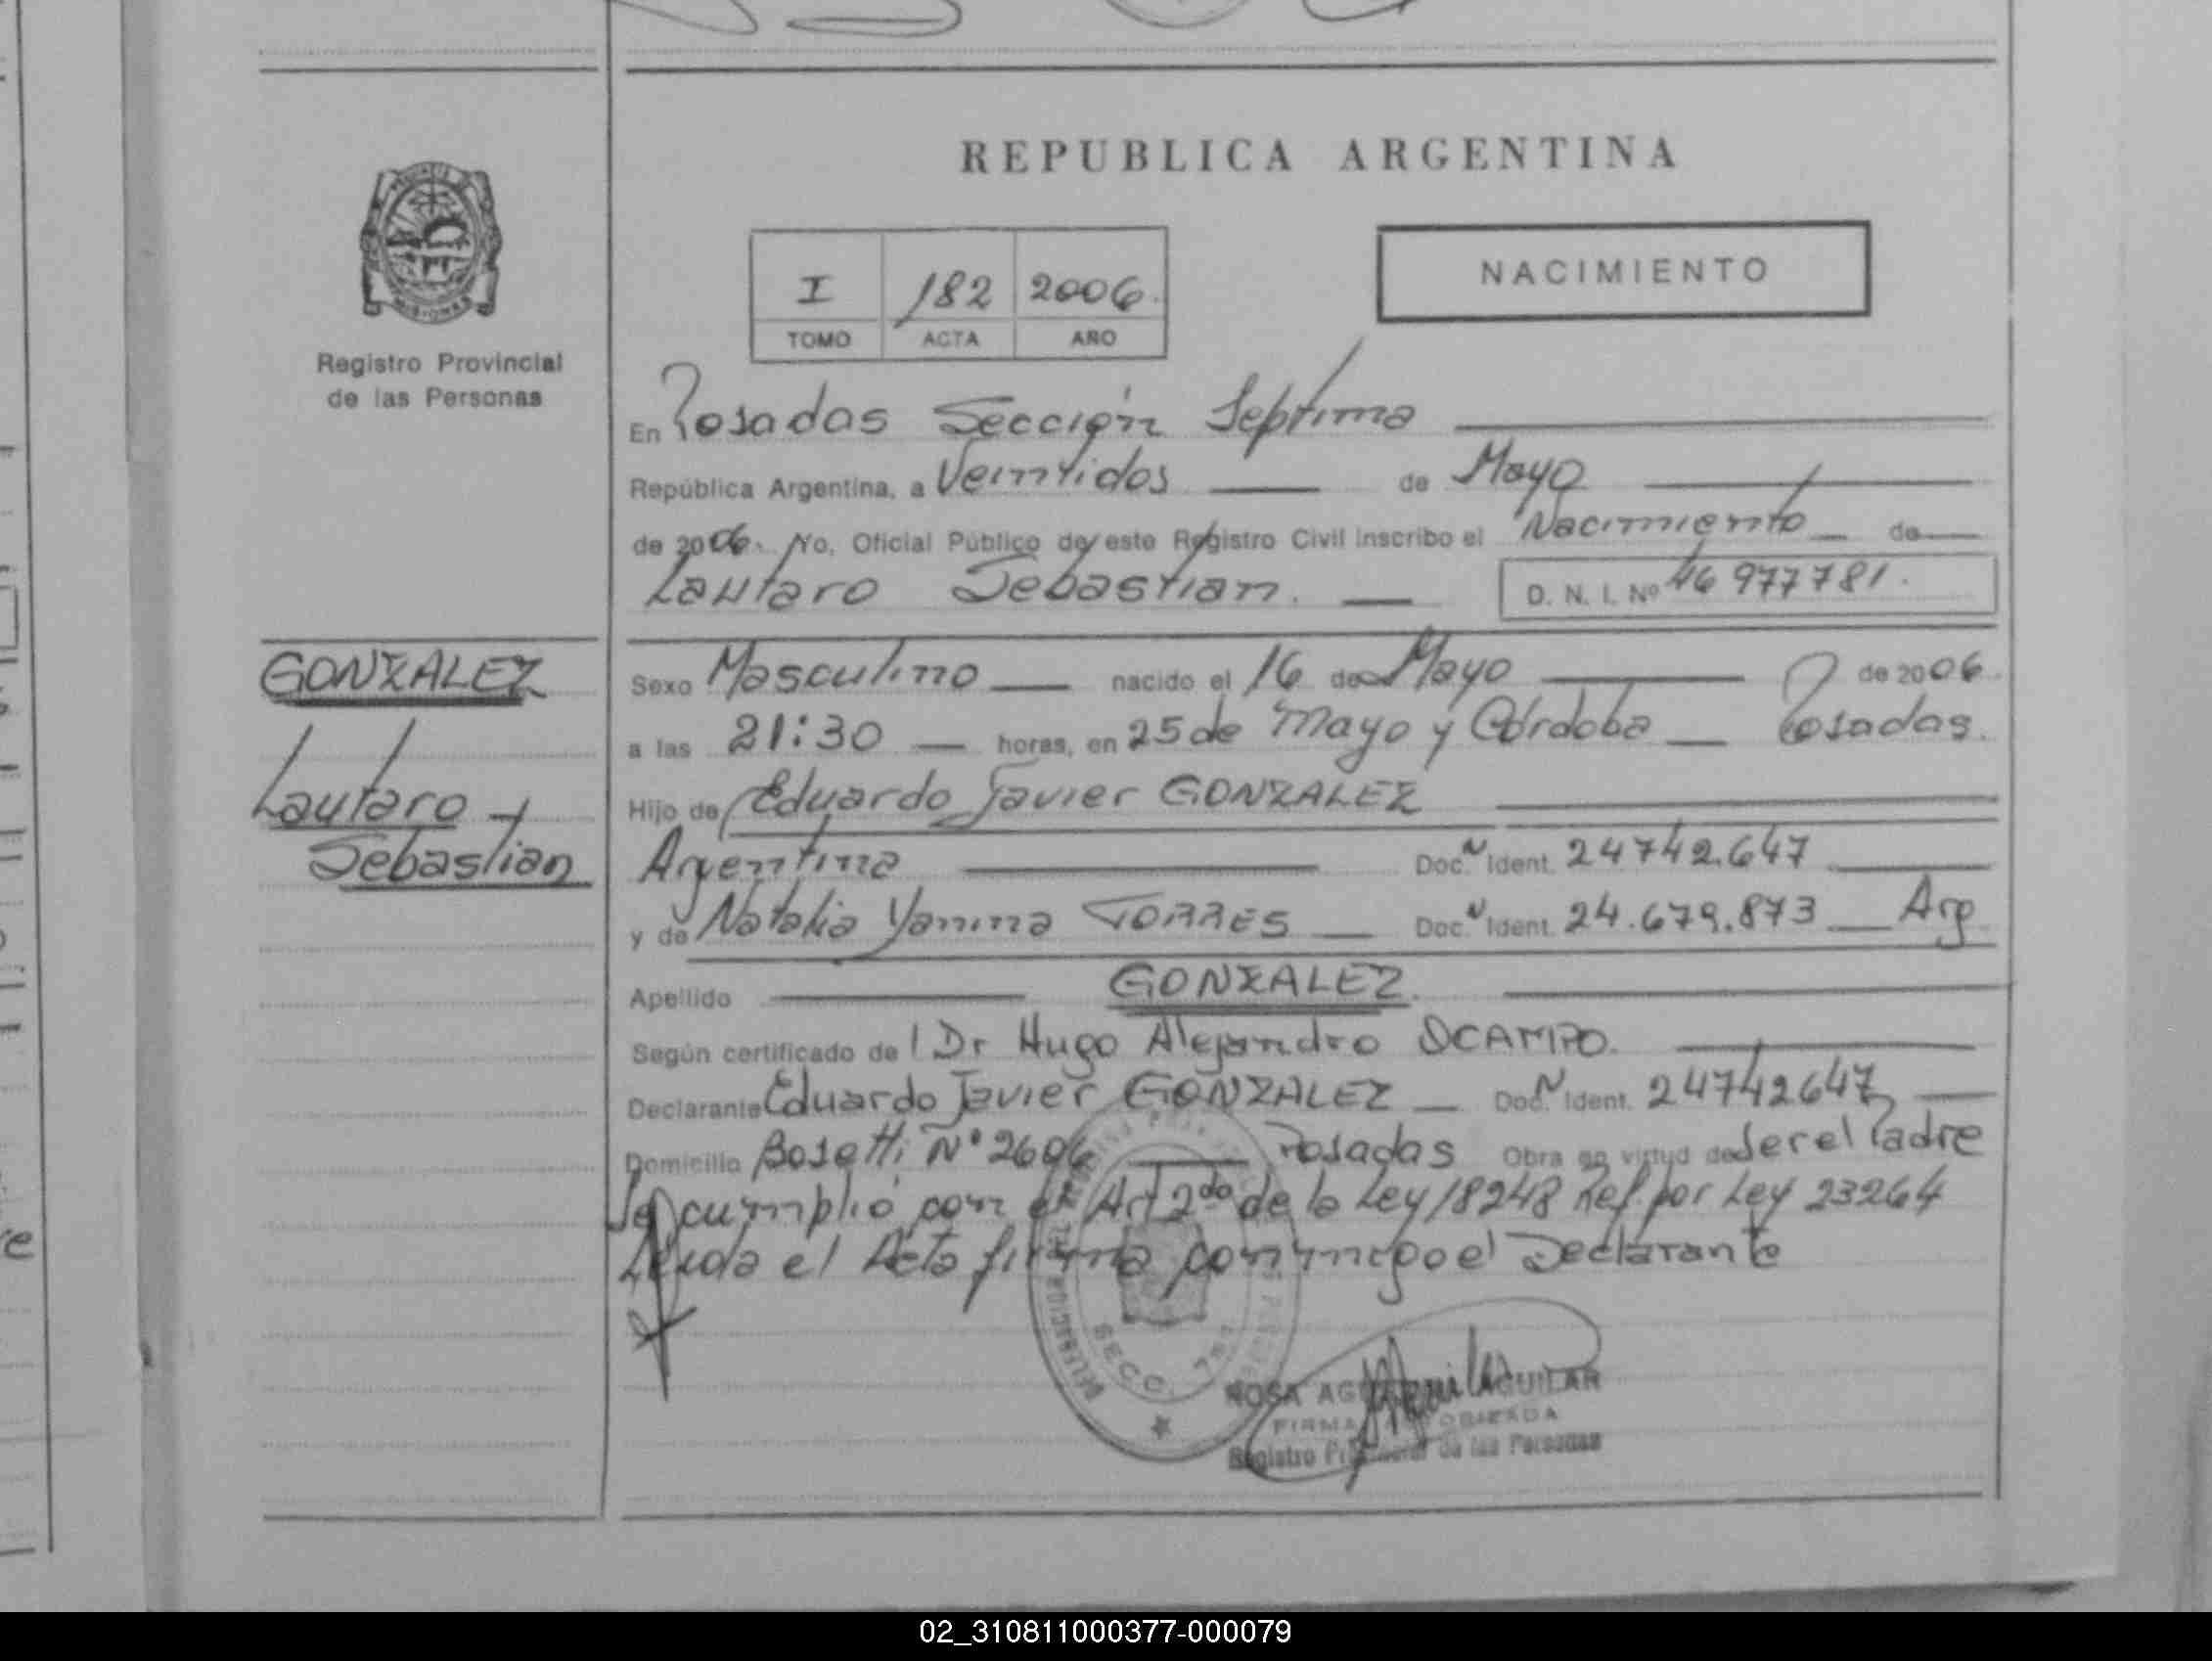 REPUBLICA ARGENTINA
NACIMIENTO
I 182 2006
TOMO ACTA AÑO
Registro Provincial
de las Personas
En Posadas Sección Septima
República Argentina, a Veintidos de Mayo
de 2006. Yo, Oficial Público de este Registro Civil inscribo el Nacimiento de
Lautaro Sebastian. D. N. I. Nº 46 977781.
GONZALEZ
Lautaro
Sebastian
Sexo Masculino nacido el 16 de Mayo de 2006.
a las 21:30 horas, en 25 de Mayo y Córdoba Posadas.
Hijo de Eduardo Javier GONZALEZ
Argentina Doc. N Ident. 24742.647
y de Natalia Yanina TORRES Doc. N Ident. 24.679.873 Arg
Apellido GONZALEZ.
Según certificado de l Dr Hugo Alejandro OCAMPO.
Declarante Eduardo Javier GONZALEZ Doc. N Ident. 24742647
Domicilio Bosetti Nº 2606 Posadas Obra en virtud de Ser el Padre
Se cumplió con el Art 2do de la Ley 18248 Ref. por Ley 23264
Leida el Acta firma conmigo el Declarante
SECC. 7ma
ROSA AGUILAR
FIRMA AUTORIZADA
Registro Provincial de las Personas
02_310811000377-000079